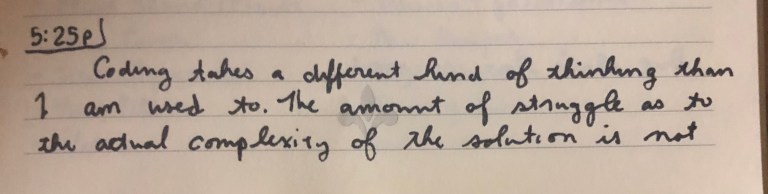 5:25p
Coding takes a different kind of thinking than
I am used to. The amount of struggle as to
the actual complexity of the solution is not